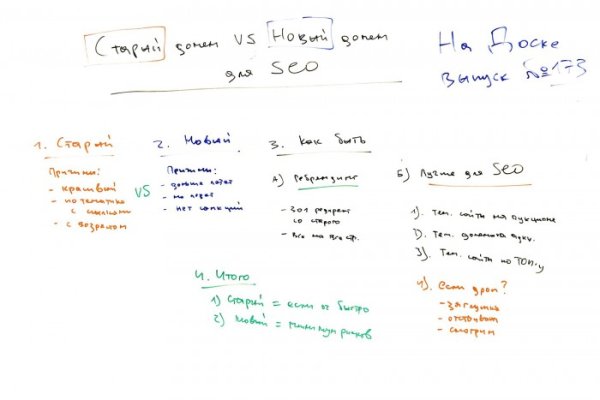 Старый домен VS Новый домен
для SEO
На Доске
выпуск №173
1. Старый
Причины:
- красивый
- по тематике
с ссылками
- с возрастом
VS
2. Новый
Причины:
- дольше
- нет санкций
3. Как быть
А) Ребрендинг
- 301 редирект
со старого
- Все на все стр.
Б) Лучше для SEO
1). Тем. сайты на аукционе
2). Тем. домены аукц.
3). Тем. сайты по ТОП-у
4). Если дроп?
- загнулись
- отстаивать
- смотрим
4. Итого
1) Старый = если оч быстро
2) Новый = минимум рисков